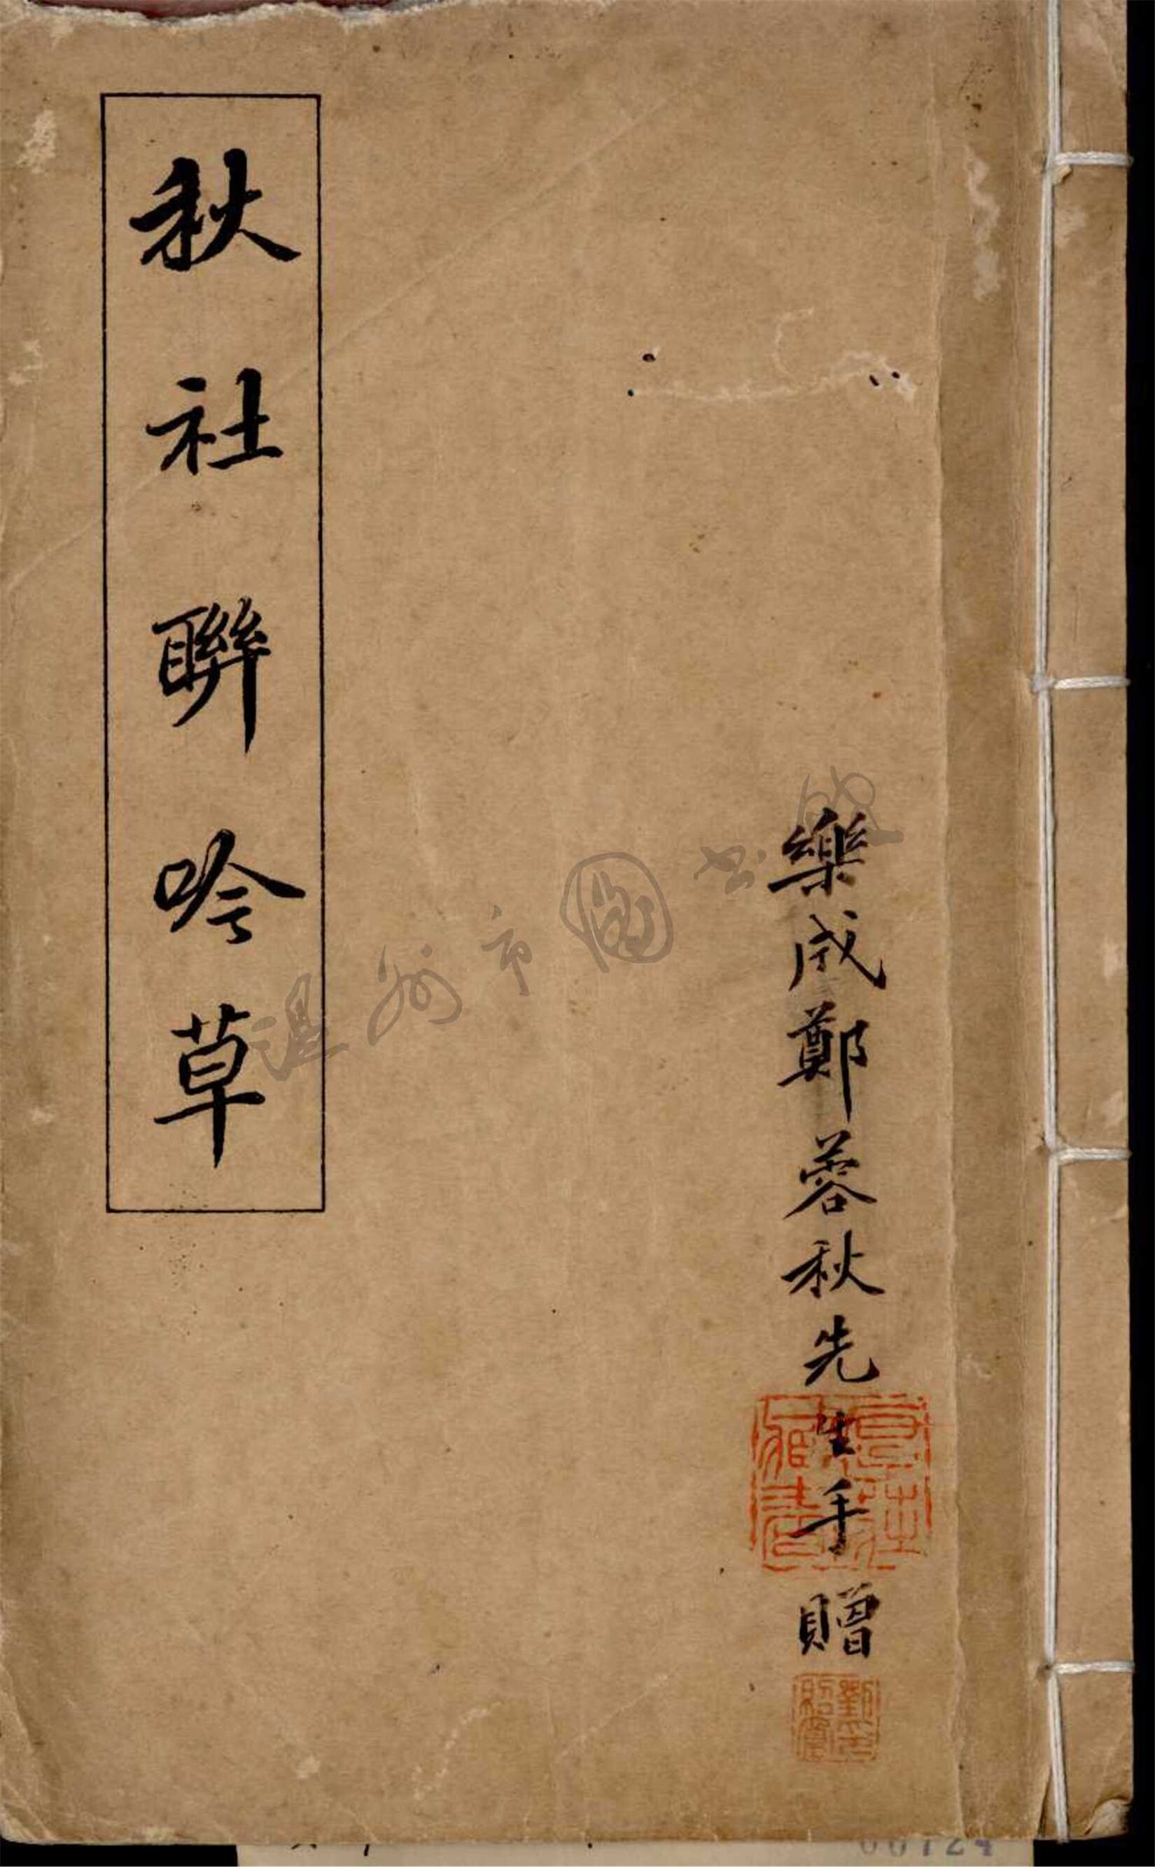 樂成鄭蓉秋先生手贈
秋社聯吟草
温州市圖书館
00724